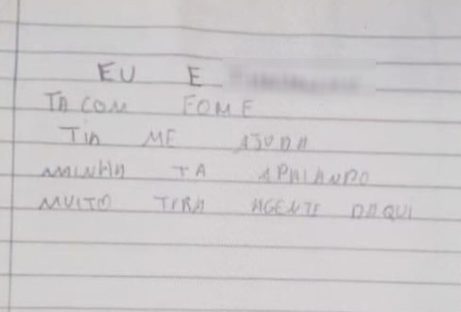 EU E
TA COM FOME
TIA ME AJUDA
MINHA TA APANANDO
MUITO TIRA AGENTE DAQUI